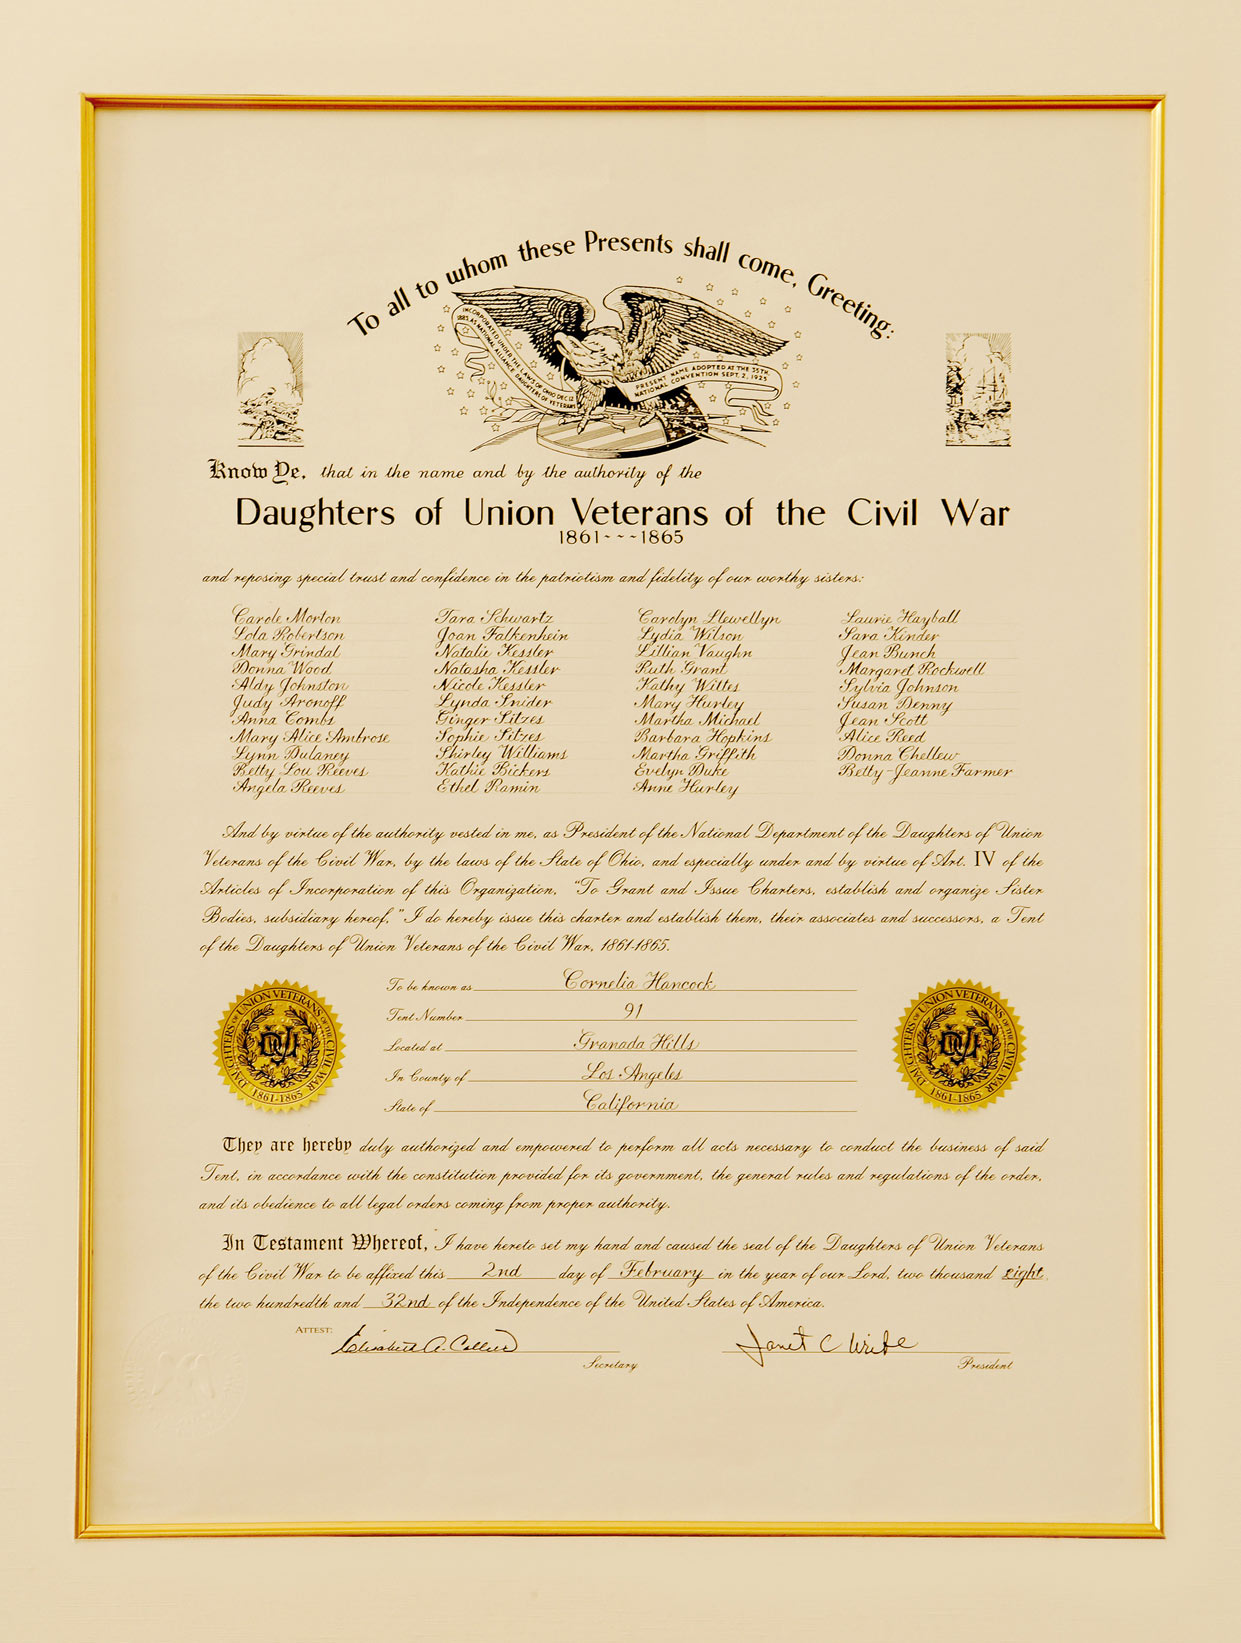 To all to whom these Presents shall come, Greeting:
INCORPORATED UNDER THE LAWS OF OHIO DEC. 12
1885, AS NATIONAL ALLIANCE DAUGHTERS OF VETERANS
PRESENT NAME ADOPTED AT THE 35TH
NATIONAL CONVENTION SEPT. 2, 1925
Know Ye, that in the name and by the authority of the
Daughters of Union Veterans of the Civil War
1861~~~1865
and reposing special trust and confidence in the patriotism and fidelity of our worthy sisters:
Carole Morton Tara Schwartz Carolyn Llewellyn Laurie Hayball
Lola Robertson Joan Falkenhein Lydia Wilson Sara Kinder
Mary Grindal Natalie Kessler Lillian Vaughn Jean Bunch
Donna Wood Natasha Kessler Ruth Grant Margaret Rockwell
Aldy Johnston Nicole Kessler Kathy Wittes Sylvia Johnson
Judy Aronoff Lynda Snider Mary Hurley Susan Denny
Anna Combs Ginger Sitzes Martha Michael Jean Scott
Mary Alice Ambrose Sophie Sitzes Barbara Hopkins Alice Reed
Lynn Dulaney Shirley Williams Martha Griffith Donna Chellew
Betty Lou Reeves Kathie Bickers Evelyn Duke Betty-Jeanne Farmer
Angela Reeves Ethel Ramin Anne Hurley
And by virtue of the authority vested in me, as President of the National Department of the Daughters of Union
Veterans of the Civil War, by the laws of the State of Ohio, and especially under and by virtue of Art. IV of the
Articles of Incorporation of this Organization, "To Grant and Issue Charters, establish and organize Sister
Bodies, subsidiary hereof," I do hereby issue this charter and establish them, their associates and successors, a Tent
of the Daughters of Union Veterans of the Civil War, 1861-1865.
To be known as Cornelia Hancock
Tent Number 91
Located at Granada Hills
In County of Los Angeles
State of California
DAUGHTERS OF UNION VETERANS OF THE CIVIL WAR
DUV
1861-1865
DAUGHTERS OF UNION VETERANS OF THE CIVIL WAR
DUV
1861-1865
They are hereby duly authorized and empowered to perform all acts necessary to conduct the business of said
Tent, in accordance with the constitution provided for its government, the general rules and regulations of the order,
and its obedience to all legal orders coming from proper authority.
In Testament Whereof, I have hereto set my hand and caused the seal of the Daughters of Union Veterans
of the Civil War to be affixed this 2nd day of February in the year of our Lord, two thousand eight,
the two hundredth and 32nd of the Independence of the United States of America.
ATTEST: Elizabeth A. Collier Janet C Write
Secretary President